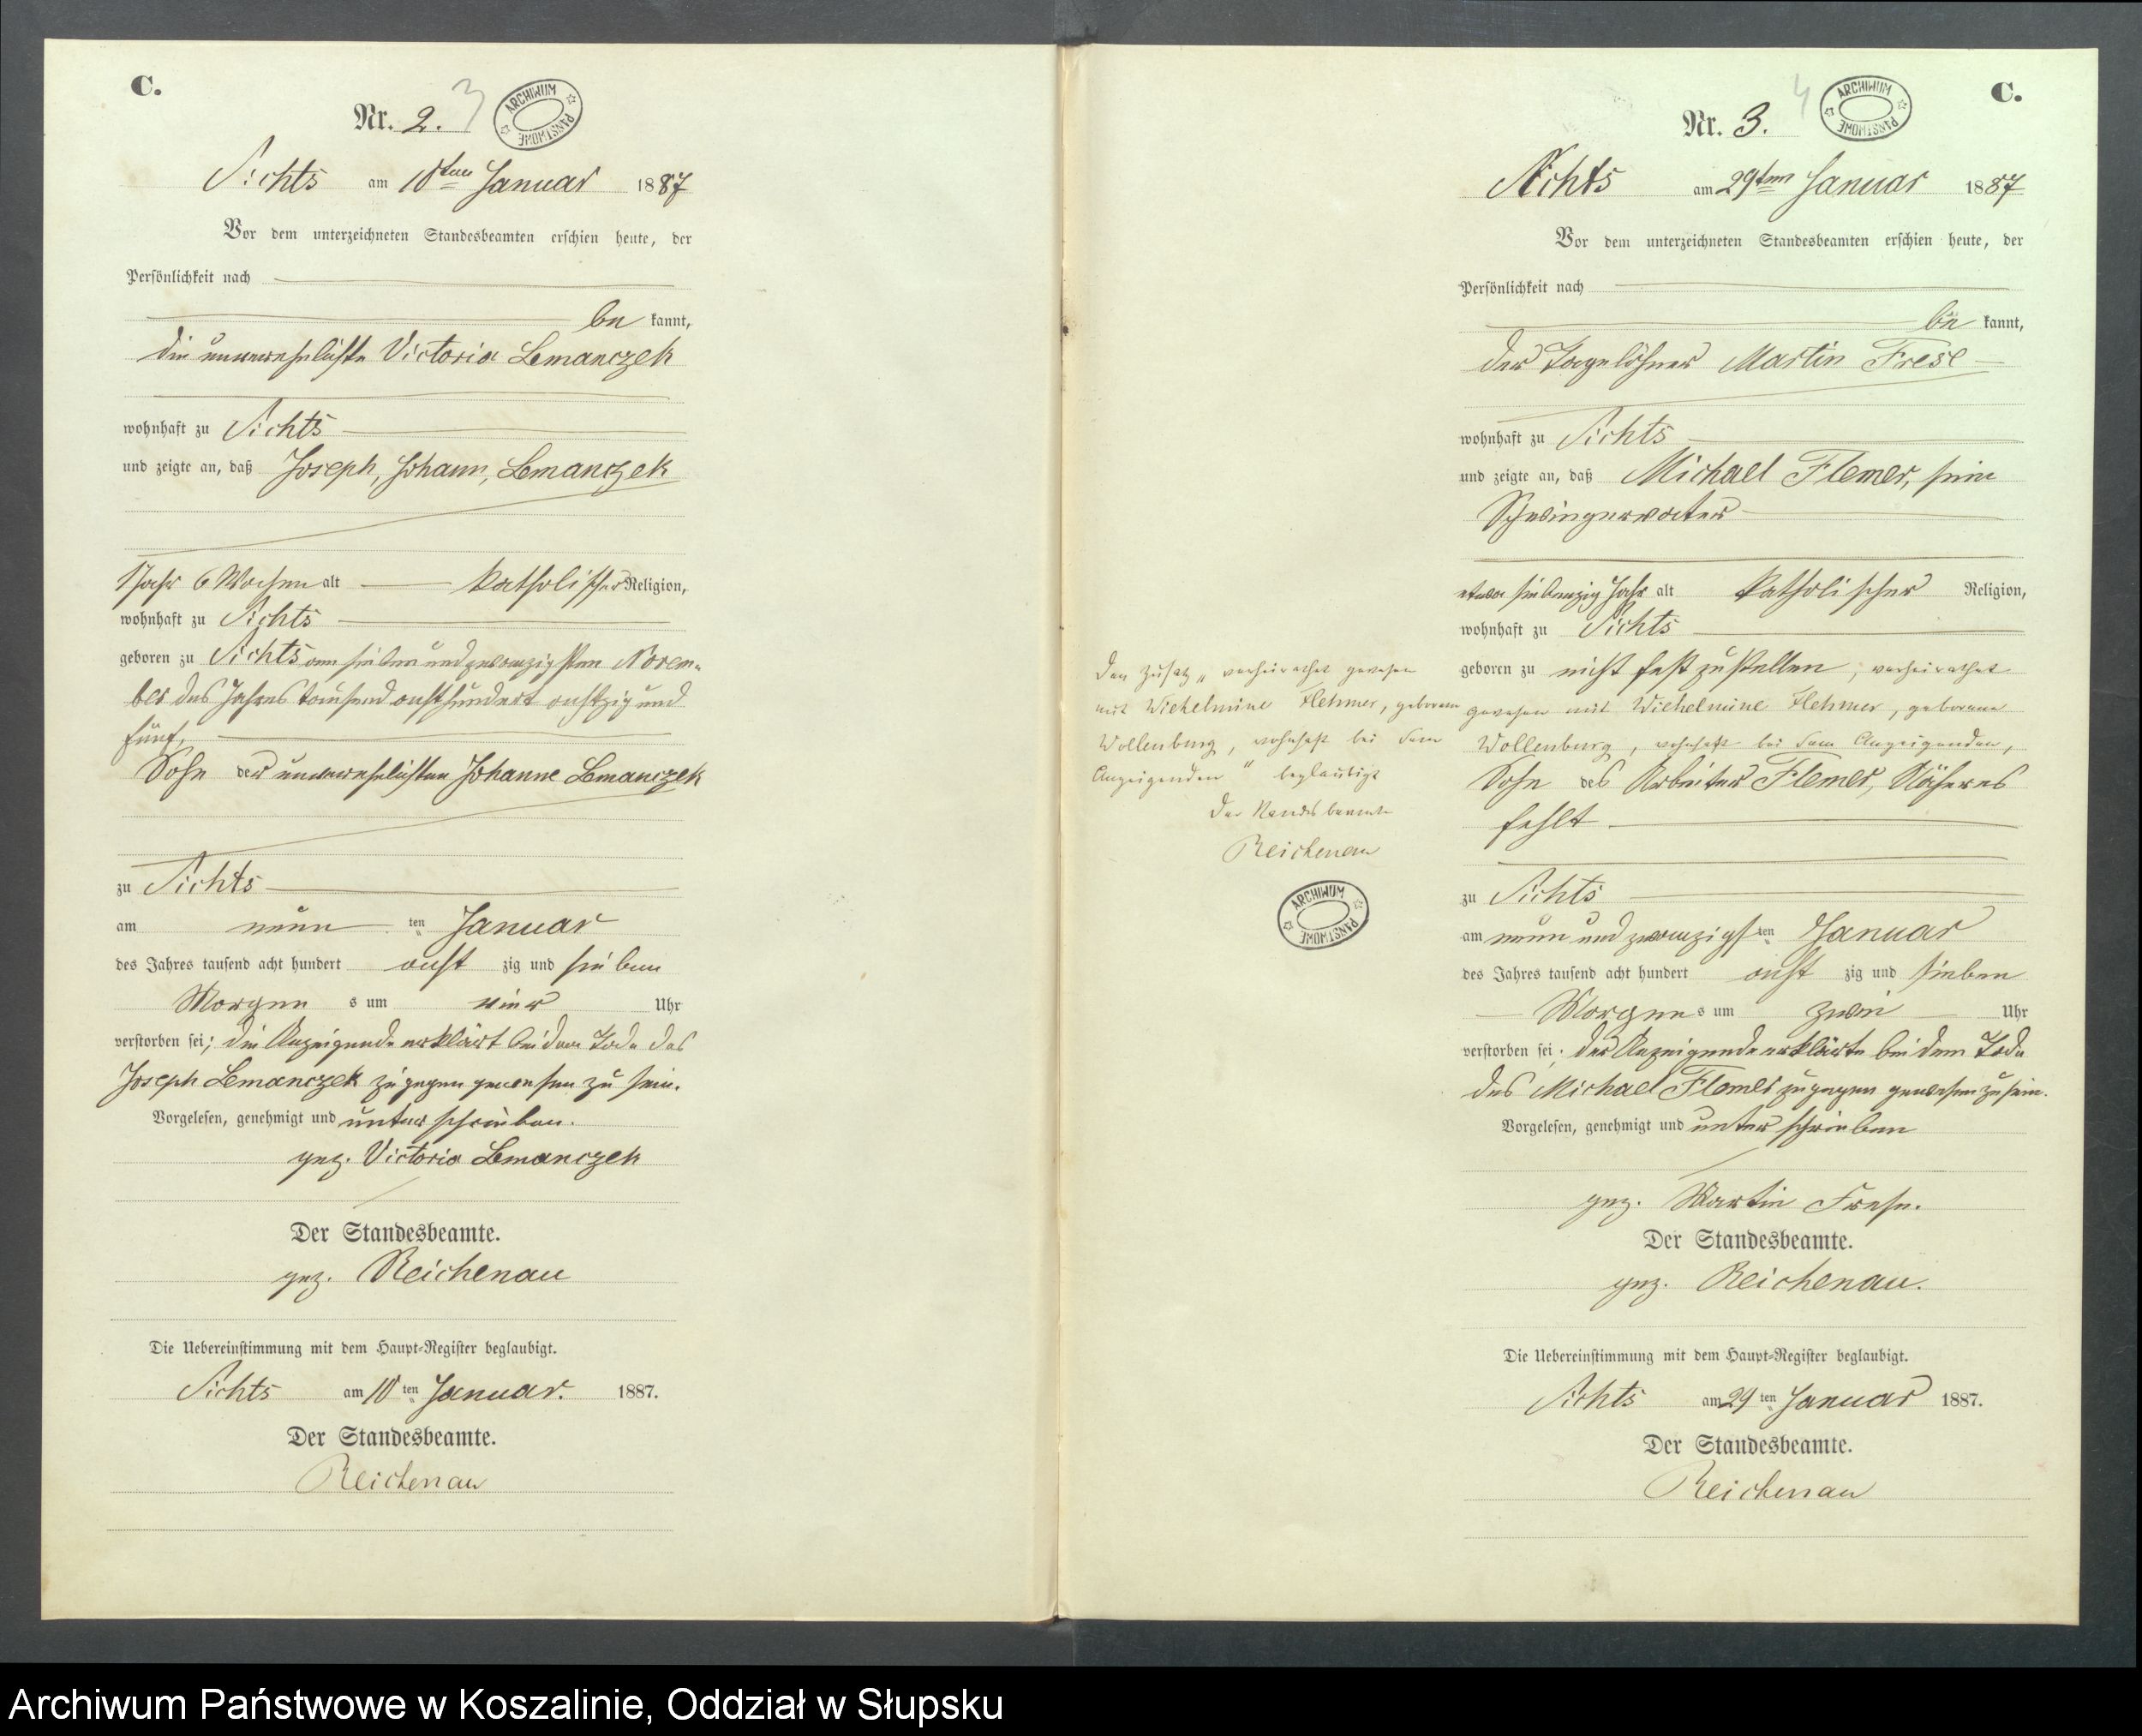 C.
Nr. 2. 3
ARCHIWUM PAŃSTWOWE
Sichts am 10ten Januar 1887
Vor dem unterzeichneten Standesbeamten erschien heute, der
Persönlichkeit nach
be kannt,
die unverehelichte Victoria Lemanczek
wohnhaft zu Sichts
und zeigte an, daß Joseph, Johann, Lemanczek
1 Jahr 6 Wochen alt katholischer Religion,
wohnhaft zu Sichts
geboren zu Sichts am sieben und zwanzigsten Novem-
ber des Jahres tausend achthundert achtzig und
fünf,
Sohn der unverehelichten Johanne Lemanczek
zu Sichts
am neun ten Januar
des Jahres tausend acht hundert acht zig und sieben
Morgen s um vier Uhr
verstorben sei; die Anzeigende erklärt bei dem Tode des
Joseph Lemanczek zugegen gewesen zu sein.
Vorgelesen, genehmigt und unterschrieben.
gez. Victoria Lemanczek
Der Standesbeamte.
gez. Reichenau
Die Uebereinstimmung mit dem Haupt-Register beglaubigt.
Sichts am 10 ten Januar. 1887.
Der Standesbeamte.
Reichenau
C.
Nr. 3. 4
ARCHIWUM PAŃSTWOWE
Sichts am 29ten Januar 1887
Vor dem unterzeichneten Standesbeamten erschien heute, der
Persönlichkeit nach
be kannt,
der Tagelöhner Martin Frese
wohnhaft zu Sichts
und zeigte an, daß Michael Flemer, sein
Schwiegervater
etwa siebenzig Jahr alt katholischer Religion,
wohnhaft zu Sichts
geboren zu nicht fest zu stellen, verheirathet
gewesen mit Wilhelmine Flehmer, geborene
Wollenburg, wohnhaft bei dem Anzeigenden,
Sohn des Arbeiter Flemer, Näheres
fehlt
zu Sichts
am neun und zwanzigs ten Januar
des Jahres tausend acht hundert acht zig und sieben
Morgen s um zwei Uhr
verstorben sei; der Anzeigende erklärte bei dem Tode
des Michael Flemer zugegen gewesen zu sein.
Vorgelesen, genehmigt und unterschrieben
gez. Martin Frese.
Der Standesbeamte.
gez. Reichenau.
Die Uebereinstimmung mit dem Haupt-Register beglaubigt.
Sichts am 29 ten Januar 1887.
Der Standesbeamte.
Reichenau
Den Zusatz „verheirathet gewesen
mit Wilhelmine Flehmer, geborene
Wollenburg, wohnhaft bei dem
Anzeigenden" beglaubigt
Der Standesbeamte
Reichenau
ARCHIWUM PAŃSTWOWE
Archiwum Państwowe w Koszalinie, Oddział w Słupsku